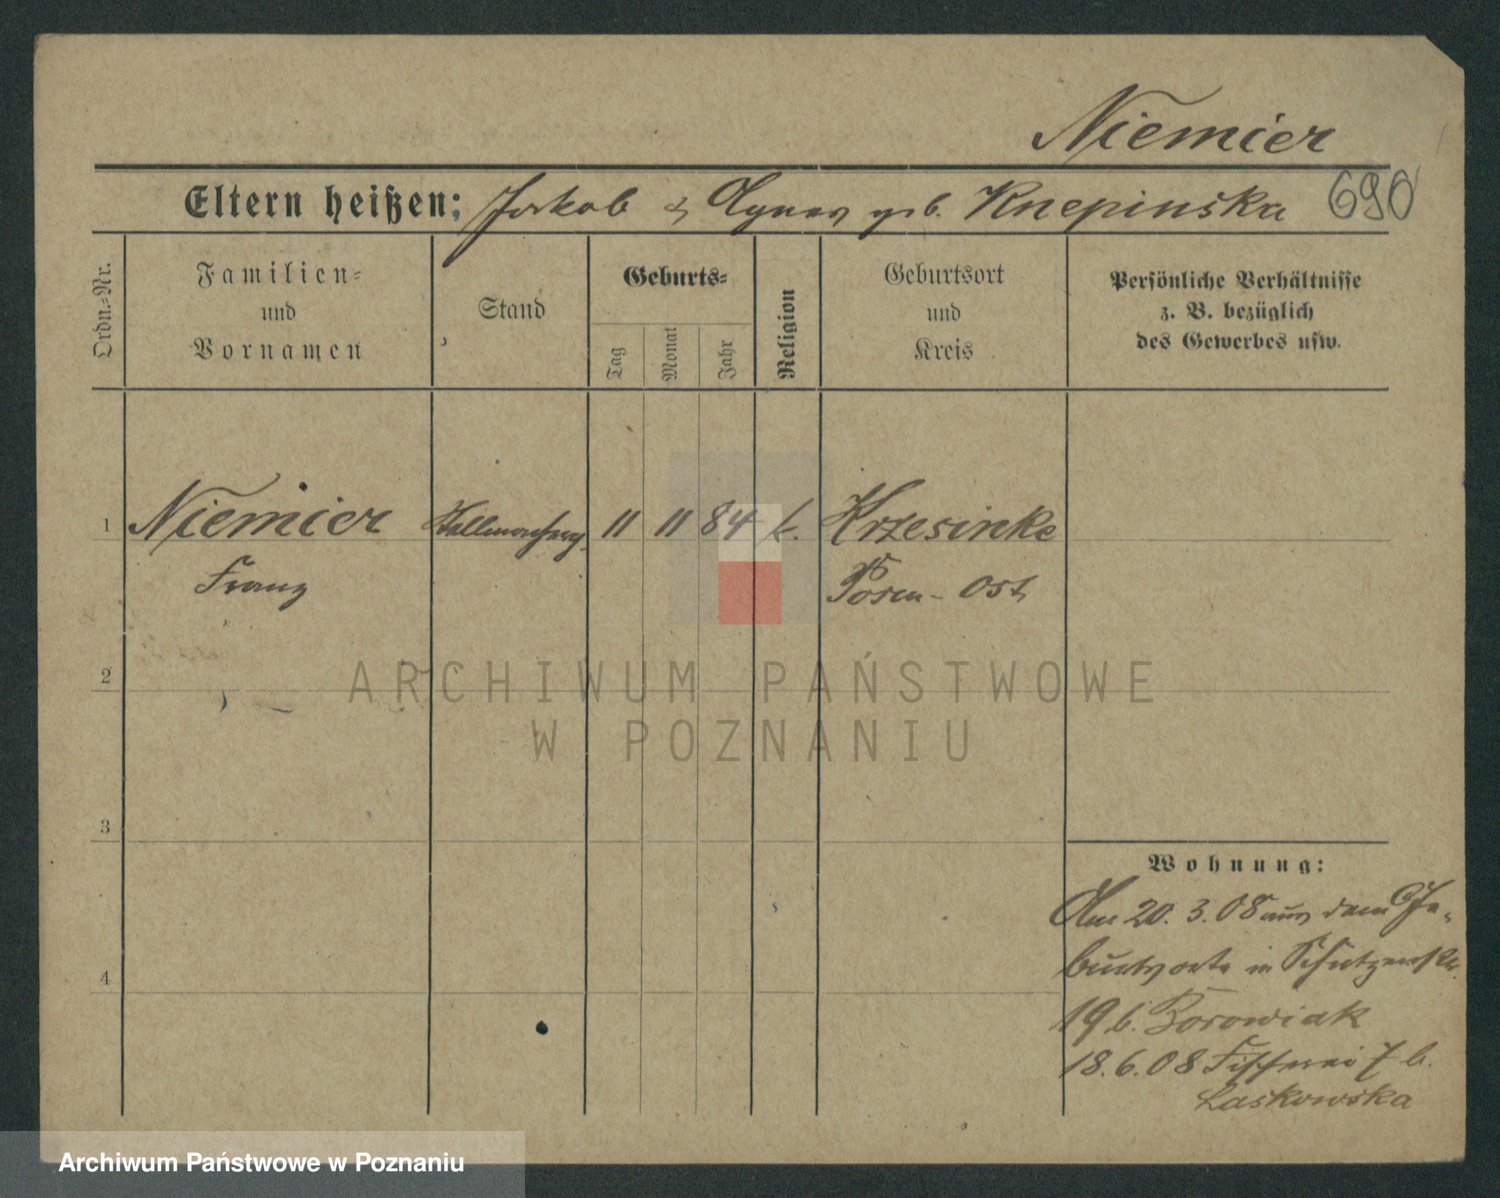 Niemier
Eltern heißen: Jakob & Agnes geb. Knepinska 690
Ordn.-Nr.
Familien-
und
Vornamen
Stand
Geburts-
Tag
Monat
Jahr
Religion
Geburtsort
und
Kreis
Persönliche Verhältnisse
z. B. bezüglich
des Gewerbes usw.
1 Niemier 11 11 84 k. Krzesinke
Franz Posen-Ost
2
ARCHIWUM PAŃSTWOWE
W POZNANIU
3
Wohnung:
Am 20. 3. 08 aus dem Ge-
burtsorte in Schützenstr.
4
19 b. Borowiak
18. 6. 08 Fischerei 7 b.
Laskowska
Archiwum Państwowe w Poznaniu